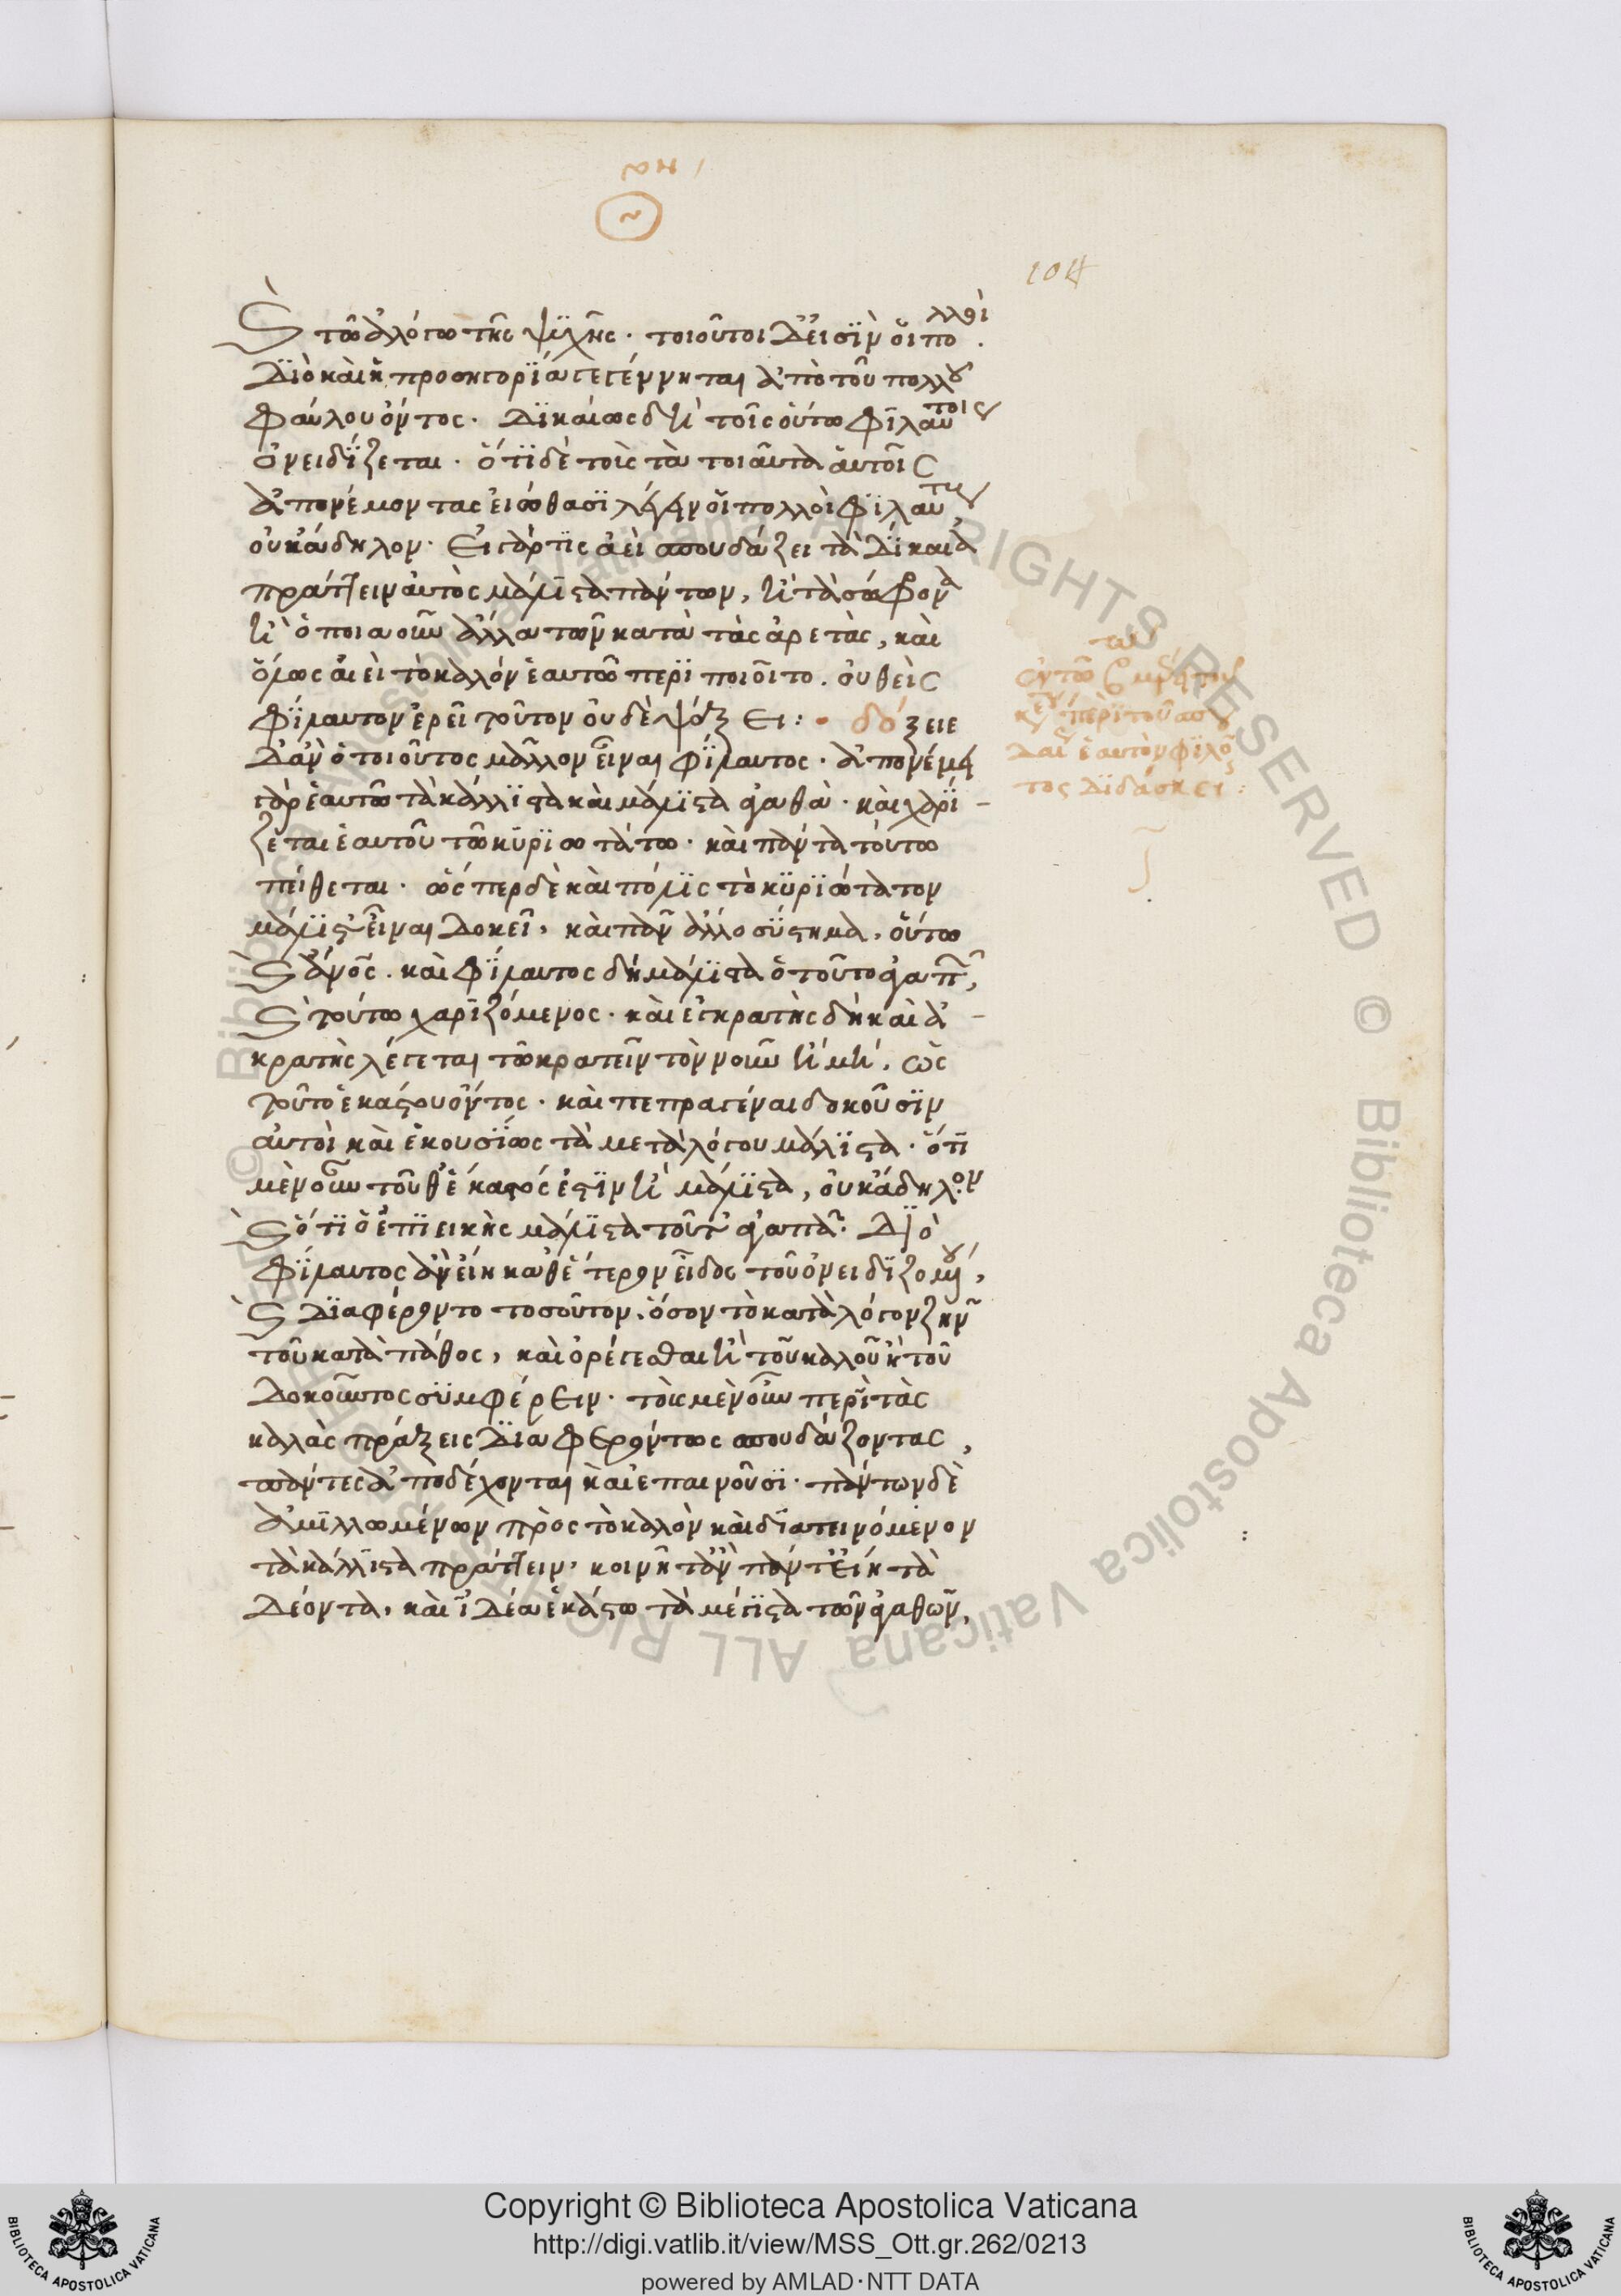 104
καὶ τῶ ἀλόγω τῆς ψυχῆς. τοιοῦτοι δ' εἰσὶν οἱ πολλοὶ.
Διὸ καὶ ἡ προσηγορία γεγένηται ἀπὸ τοῦ πολλοῦ
φαύλου ὄντος. Δικαίως δὴ τοῖς οὕτω φιλαύτοις
ὀνειδίζεται. ὅτι δὲ τοὺς τὰ τοιαῦτα αὑτοῖς
ἀπονέμοντας εἰώθασι λέγειν οἱ πολλοὶ φιλαύτους
οὐκ ἄδηλον. Εἰ γάρ τις ἀεὶ σπουδάζει τὰ δίκαια
πράττειν αὐτὸς μάλιστα πάντων, ἢ τὰ σώφρονα
ἢ ὁποιαοῦν ἄλλα τῶν κατὰ τὰς ἀρετὰς, καὶ
ὅλως ἀεὶ τὸ καλὸν ἑαυτῶ περιποιοῖτο. οὐθεὶς
φίλαυτον ἐρεῖ τοῦτον οὐδὲ ψέξει: δόξειε
Δ' ἂν ὁ τοιοῦτος μᾶλλον εἶναι φίλαυτος. ἀπονέμει
γὰρ ἑαυτῶ τὰ κάλλιστα καὶ μάλιστα ἀγαθὰ. καὶ χαρί-
ζεται ἑαυτοῦ τῶ κυριωτάτω. καὶ πάντα τούτω
πείθεται. ὥσπερ δὲ καὶ πόλις τὸ κυριώτατον
μάλιστ' εἶναι δοκεῖ, καὶ πᾶν ἄλλο σύστημα, οὕτω
καὶ ἄνος. καὶ φίλαυτος δὴ μάλιστα ὁ τοῦτο ἀγαπῶν,
καὶ τούτω χαριζόμενος. καὶ ἐγκρατὴς δὴ καὶ ἀ-
κρατὴς λέγεται τῶ κρατεῖν τὸν νοῦν ἢ μή. ὡς
τοῦτο ἑκάστου ὄντος. καὶ πεπραγέναι δοκοῦσιν
αὐτοὶ καὶ ἑκουσίως τὰ μετὰ λόγου μάλιστα. ὅτι
μὲν οὖν τοῦθ' ἕκαστός ἐστιν ἢ μάλιστα, οὐκ ἄδηλον
καὶ ὅτι ὁ ἐπιεικὴς μάλιστα τοῦτ' ἀγαπᾶ. Διὸ
φίλαυτος ἂν εἴη καθ' ἕτερον εἶδος τοῦ ὀνειδιζομένου,
καὶ διαφέρον τοσοῦτον, ὅσον τὸ κατὰ λόγον ζῆν
τοῦ κατὰ πάθος, καὶ ὀρέγεσθαι ἢ τοῦ καλοῦ ἢ τοῦ
δοκοῦντος συμφέρειν. τοὺς μὲν οὖν περὶ τὰς
καλὰς πράξεις διαφερόντως σπουδάζοντας,
πάντες ἀποδέχονται καὶ ἐπαινοῦσι. πάντων δὲ
ἁμιλλωμένων πρὸς τὸ καλὸν καὶ διατεινόμενον
τὰ κάλλιστα πράττειν, κοινῆ τ' ἂν πάντ' εἴη τὰ
δέοντα, καὶ ἰδέα ἑκάστω τὰ μέγιστα τῶν ἀγαθῶν,
περὶ τοῦ
ἑαυτὸν
τος διδάσκει:
Copyright © Biblioteca Apostolica Vaticana
http://digi.vatlib.it/view/MSS_Ott.gr.262/0213
powered by AMLAD·NTT DATA
BIBLIOTECA APOSTOLICA VATICANA
BIBLIOTECA APOSTOLICA VATICANA
© Biblioteca Apostolica Vaticana ALL RIGHTS RESERVED